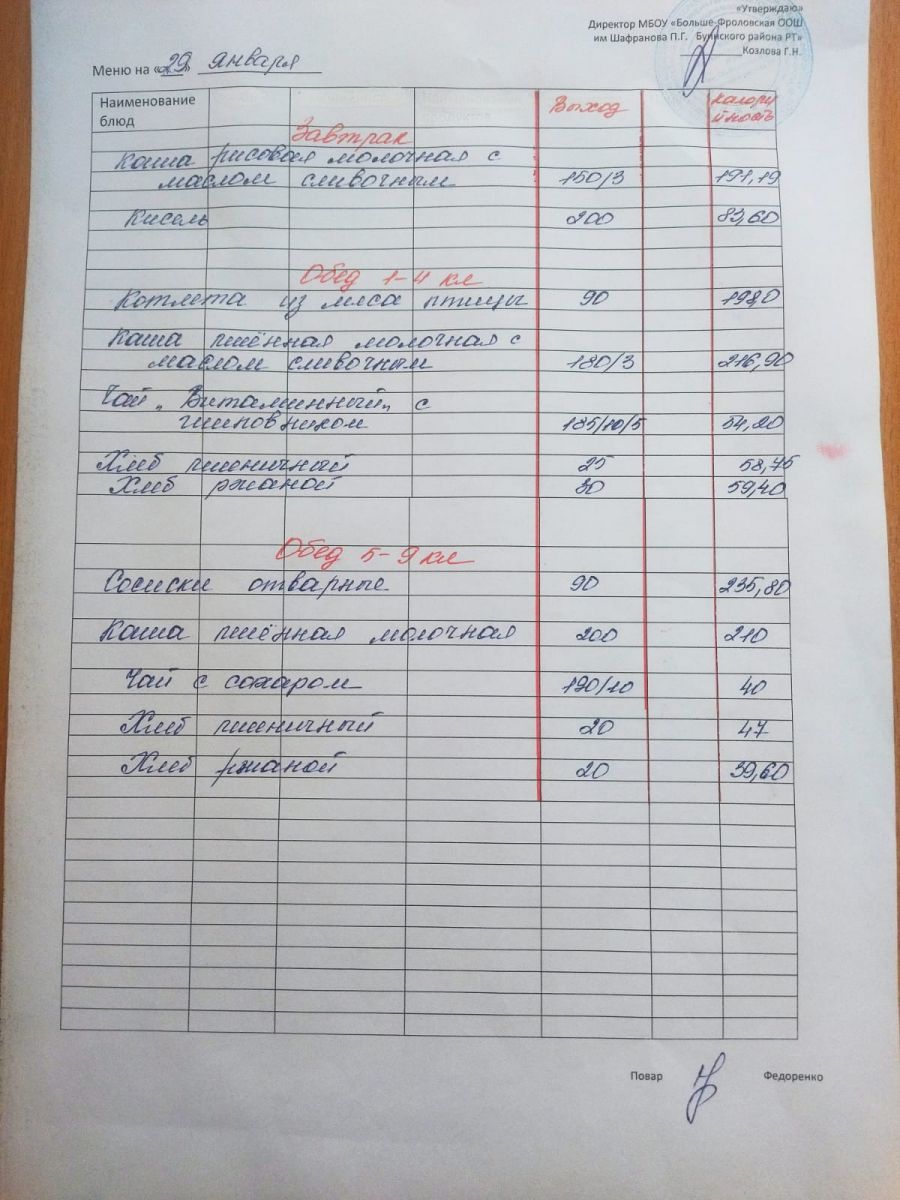 «Утверждаю»
Директор МБОУ «Больше-Фроловская ООШ
им Шафранова П.Г. Буинского района РТ»
Козлова Г.Н.
Меню на «29» января
Наименование блюд Выход Калорийность
Завтрак
Каша рисовая молочная с
маслом сливочным 150/3 191,19
Кисель 200 83,60
Обед 1-4 кл
Котлета из мяса птицы 90 198,0
Каша пшённая молочная с
маслом сливочным 180/3 216,90
Чай „Витаминный„ с
шиповником 185/10/5 54,20
Хлеб пшеничный 25 58,75
Хлеб ржаной 30 59,40
Обед 5-9 кл
Сосиски отварные 90 235,80
Каша пшённая молочная 200 210
Чай с сахаром 190/10 40
Хлеб пшеничный 20 47
Хлеб ржаной 20 39,60
Повар Федоренко